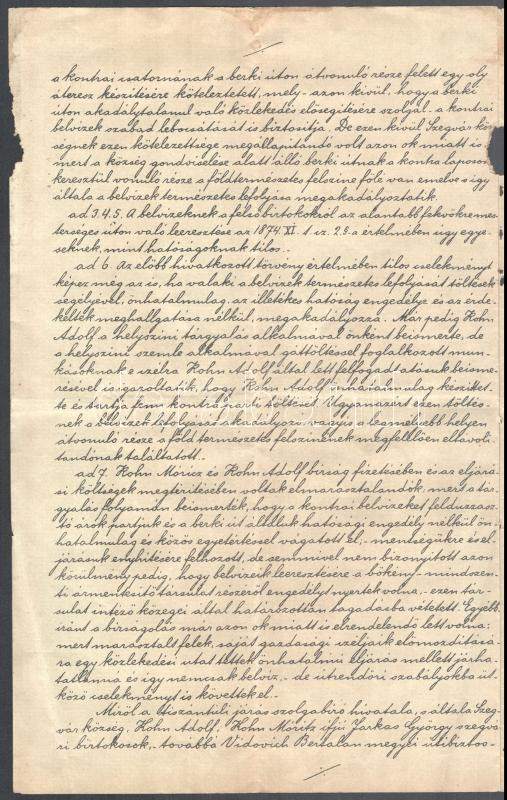 a kontrai csatornának a berki úton átvonuló része felett egy oly
áteresz készitésére köteleztetett, mely – azon kivül, hogy a berki
úton akadálytalanul való közlekedés elősegitésére szolgál – a kontrai
belvizek szabad lebocsátását is biztositja. De ezen kivül Szegvár köz-
ségnek ezen kötelezettsége megállapitandó volt azon ok miatt is
mert a község gondviselése alatt álló berki útnak a kontra laposon
keresztül vonuló része a föld természetes felszine fölé van emelve s igy
általa a belvizek természetes lefolyása megakadályoztatik.
ad 3.4.5. A belvizeknek a felső birtokokról az alantabb fekvőkre mes-
terséges úton való leeresztése az 1874 XI. 1. cz. 2.§-a értelmében úgy egye-
seknek, mint hatóságoknak tilos.
ad 6. Az előbb hivatkozott törvény értelmében tilos cselekményt
képez még az is, ha valaki a belvizek természetes lefolyását töltések
segélyével, önhatalmulag, az illetékes hatóság engedélye és az érde-
keltek meghallgatása nélkül, megakadályozza. Már pedig Kohn
Adolf a helyszini tárgyalás alkalmával önként beismerte, de
a helyszini szemle alkalmával gáttöltéssel foglalkozott mun-
kásoknak e czélra Kohn Adolf által lett felfogadtatásuk beisme-
résével is igazoltatik, hogy Kohn Adolf önhatalmulag készittet-
te és tartja fenn kontra parti töltését. Ugyanazért ezen töltés-
nek a belvizek lefolyását akadályozó vagyis legmélyebb helyen
átvonuló része a föld természetes felszinének megfelelően eltávoli-
tandónak találtatott.
ad 7. Kohn Móricz és Kohn Adolf birság fizetésében és az eljárá-
si költségek megtéritésében voltak elmarasztalandók, mert a tár-
gyalás folyamán beismerték, hogy a kontrai belvizeket felduzzasz-
tó árok partjuk és a berki út általuk hatósági engedély nélkül ön-
hatalmulag és közös egyetértéssel vágatott el, – mentségükre és el-
járásuk enyhitésére felhozott, de semmivel nem bizonyitott azon
körülmény pedig, hogy belvizeik leeresztésére a bökény-mindszen-
ti ármentesitő társulat részéről engedélyt nyertek volna, – ezen tár-
sulat intéző közegei által határozottan tagadásba vétetett. Egyéb-
iránt a birságolás már azon ok miatt is elrendelendő lett volna;
mert marasztalt felek, saját gazdasági czéljaik előmozditásá-
ra egy közlekedési utat tettek önhatalmú eljárás mellett járha-
tatlanná és igy nemcsak belviz, – de útrendőri szabályokba üt-
köző cselekményt is követtek el. –
Miről a tiszántuli járás szolgabiró hivatala, s általa Szeg-
vár község, Kohn Adolf, Kohn Móritz ifjú Farkas György szegvá-
ri birtokosok, – továbbá Vidovich Bertalan megyei útibiztos-